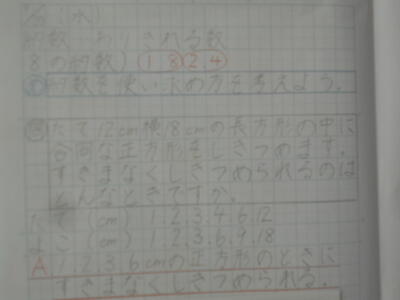 (水)
約数…わりきれる数
8の約数) 1 8 2 4
め 約数を使い、求め方を考えよう。
問 たて12cm横18cmの長方形の中に
合同な正方形をしきつめます。
すきまなくしきつめられるのは
どんなときですか。
たて (cm) 1.2.3.4.6.12
よこ (cm) 1.2.3.6.9.18
A 1.2.3.6cmの正方形のときに
すきまなくしきつめられる。